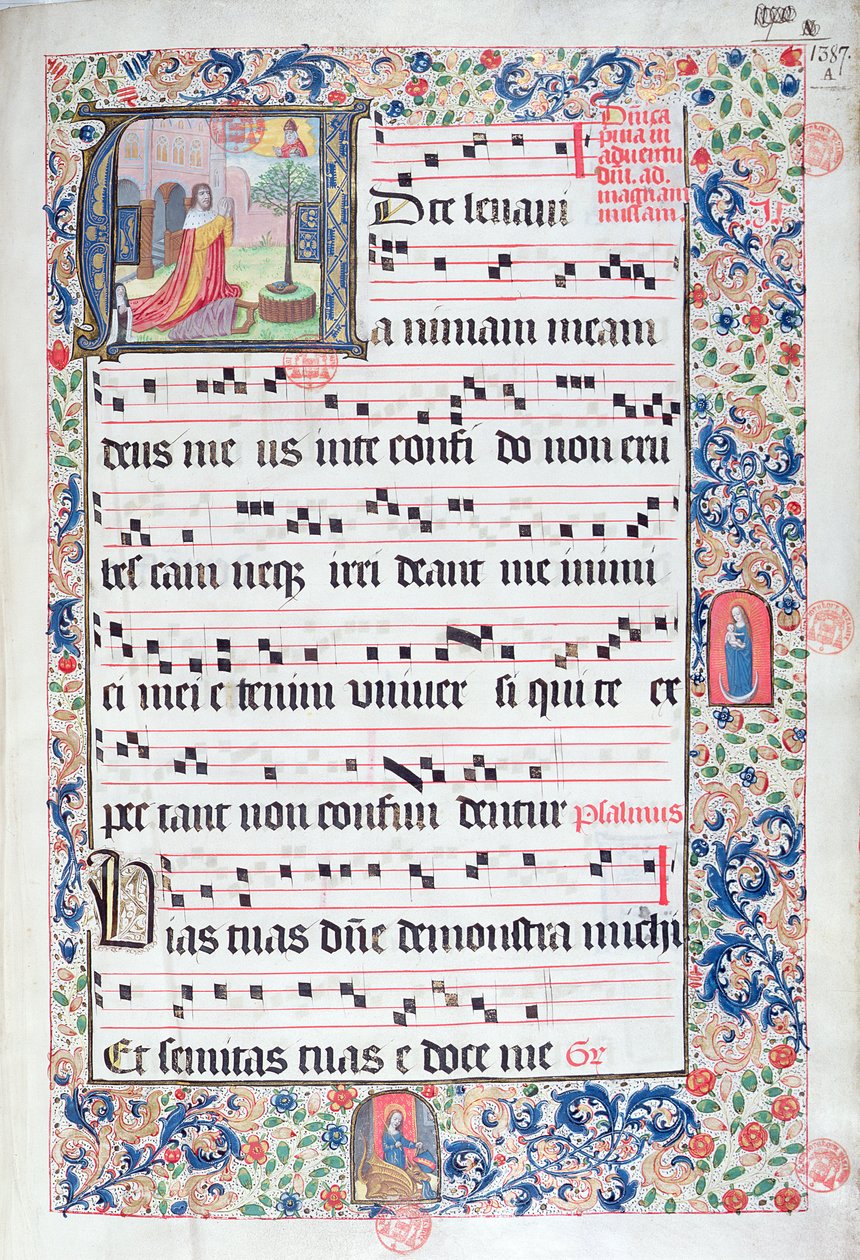 1387.
A
Dñica
pima in
aduentu
dñi. ad.
magnam
missam.
AD te leuaui
a nimam meam
deus me us inte confi do non eru
bescam neqz irri deant me inimi
ci mei e tenim vniuer si qui te ex
pec tant non confun dentur psalmus
Vias tuas dñe demonstra michi
Et semitas tuas e doce me Gr